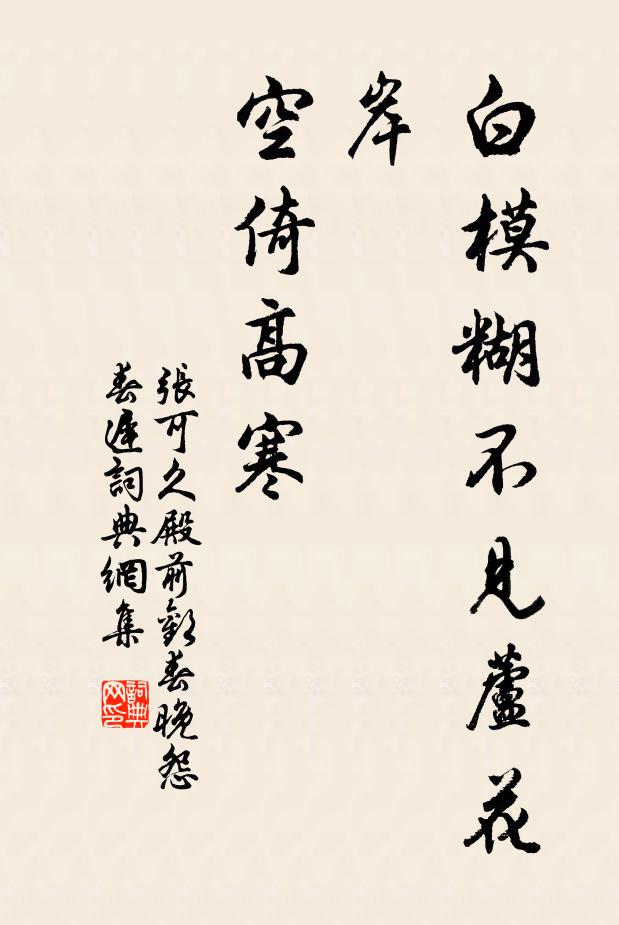 白模糊不見蘆花
岸
空倚高寒
張可久殿前歡春晚怨
春遲詞典網集
詞典網印